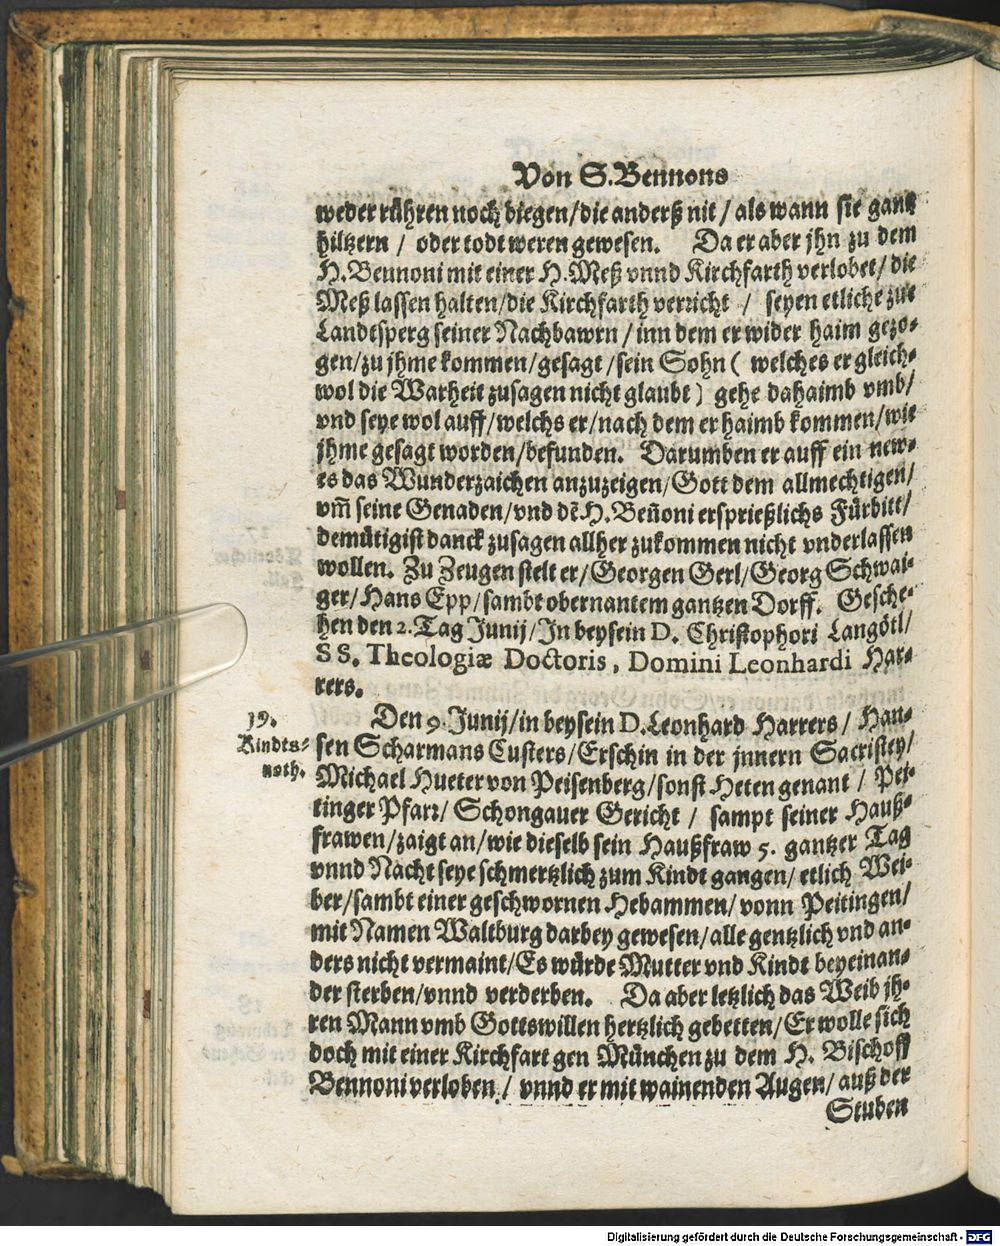 Von S. Bennons
weder rühren noch biegen/ die anderß nit / als wann sie gantz
hiltzern / oder todt weren gewesen. Da er aber jhn zu dem
H. Bennoni mit einer H. Meß vnnd Kirchfarth verlobet/ die
Meß lassen halten/ die Kirchfarth verricht / seyen etliche zue
Landtsperg seiner Nachbawrn / inn dem er wider haim gezo-
gen/ zu jhme kommen/ gesagt / sein Sohn ( welches er gleich-
wol die Warheit zusagen nicht glaubt ) gehe dahaimb vmb/
vnd seye wol auff/ welchs er/ nach dem er haimb kommen/ wie
jhme gesagt worden/ befunden. Darumben er auff ein new-
es das Wunderzaichen anzuzeigen/ Gott dem allmechtigen/
vm̄ seine Genaden/ vnd dē H. Beñoni ersprießlichs Fürbitt/
demütigist danck zusagen allher zukommen nicht vnderlassen
wollen. Zu Zeugen stelt er/ Georgen Gerl/ Georg Schwai-
ger/ Hans Epp/ sambt obernantem gantzen Dorff. Gesche-
hen den 2. Tag Junij/ In beysein D. Christophori Langötl/
SS. Theologiæ Doctoris, Domini Leonhardi Har-
rers.
19.
Kindts-
noth.
Den 9. Junij/ in beysein D. Leonhard Harrers / Han-
sen Scharmans Custers/ Erschin in der jnnern Sacristey/
Michael Hueter von Peisenberg/ sonst Heten genant / Pei-
tinger Pfarr/ Schongauer Gericht / sampt seiner Hauß-
frawen/ zaigt an/ wie dieselb sein Haußfraw 5. gantzer Tag
vnnd Nacht seye schmertzlich zum Kindt gangen/ etlich Wei-
ber/ sambt einer geschwornen Hebammen/ vonn Peitingen/
mit Namen Waltburg darbey gewesen/ alle gentzlich vnd an-
ders nicht vermaint/ Es würde Mutter vnd Kindt beyeinan-
der sterben/ vnnd verderben. Da aber letzlich das Weib jh-
ren Mann vmb Gottswillen hertzlich gebetten/ Er wolle sich
doch mit einer Kirchfart gen München zu dem H. Bischoff
Bennoni verloben / vnnd er mit wainenden Augen/ auß der
Stuben
Digitalisierung gefördert durch die Deutsche Forschungsgemeinschaft - DFG